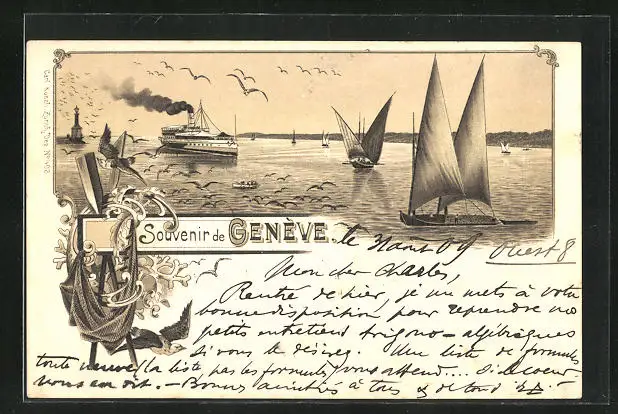 Souvenir de GENÈVE
le 3 août 09 Ouest 8
Mon cher Charles,
Rentré de hier, je me mets à votre
bonne disposition pour reprendre nos
petits entretiens trigono-algébriques
si vous le désirez. Une liste de formules
toute neuve (la liste, pas les formules) vous attend.... Si le coeur
vous en dit. - Bonnes amitiés à tous & de tout